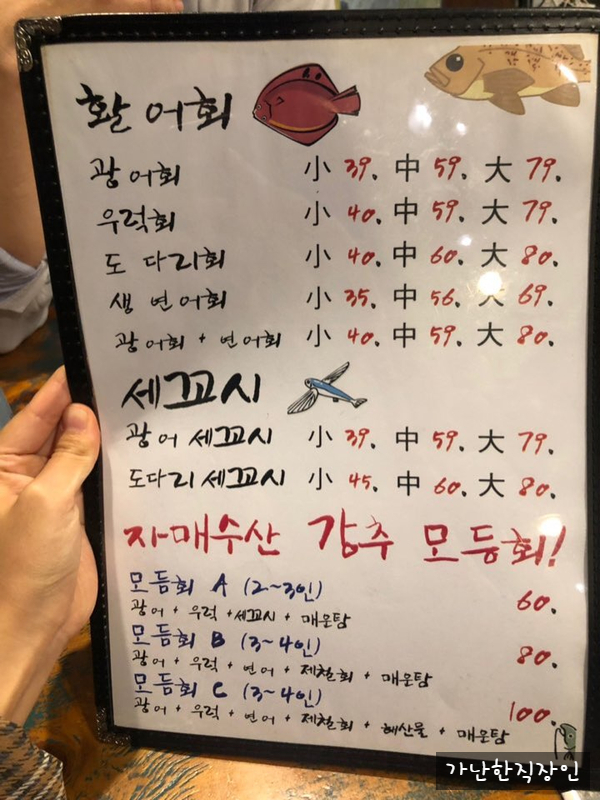 활어회
광어회 小 39. 中 59. 大 79.
우럭회 小 40. 中 59. 大 79.
도다리회 小 40. 中 60. 大 80.
생연어회 小 35. 中 56. 大 69.
광어회 + 연어회 小 40. 中 59. 大 80.
세꼬시
광어 세꼬시 小 39. 中 59. 大 79.
도다리 세꼬시 小 45. 中 60. 大 80.
자매수산 강추 모듬회!
모듬회 A (2~3인) 60.
광어 + 우럭 + 세꼬시 + 매운탕
모듬회 B (3~4인) 80.
광어 + 우럭 + 연어 + 제철회 + 매운탕
모듬회 C (3~4인) 100.
광어 + 우럭 + 연어 + 제철회 + 해산물 + 매운탕
가난한직장인